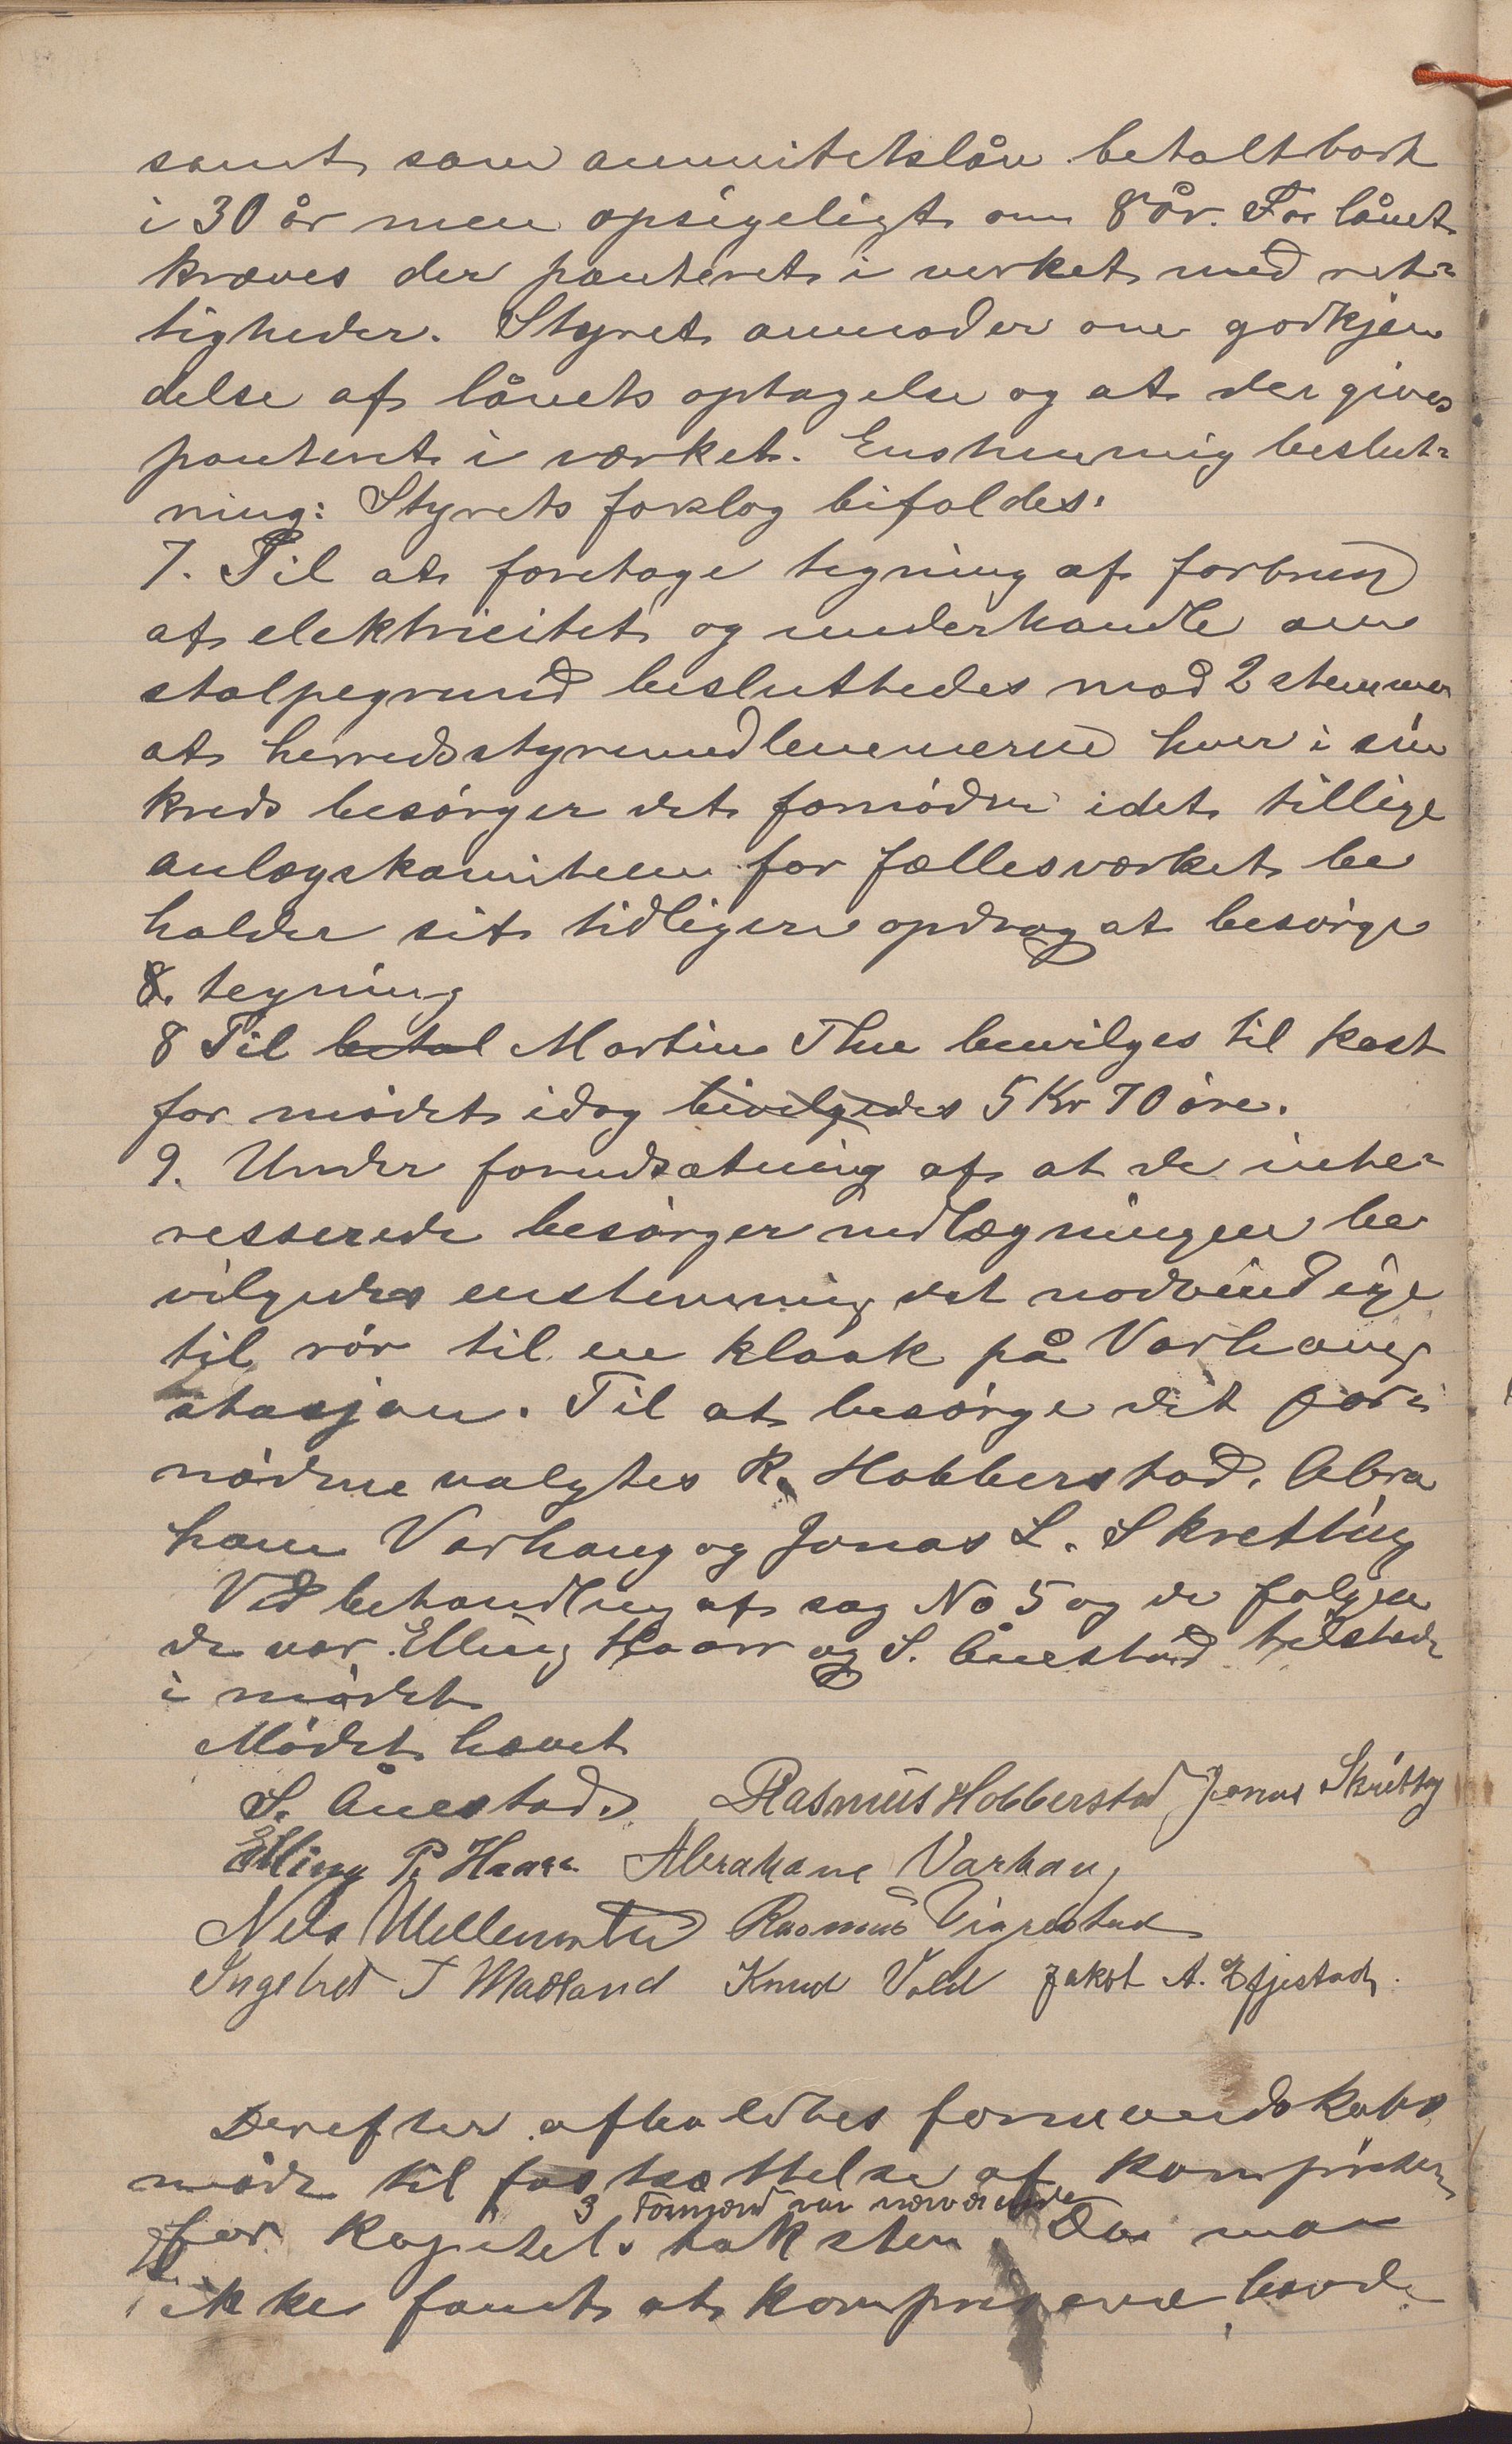 samt som annuitetslån betaltbart
i 30 år men opsigeligt om 8 år. For lånet
kræves der panteret i verket med ret-
tigheder. Styret anmoder om godkjen
delse af lånets optagelse og at der gives
panteret i værket. Enstemmig beslut-
ning: Styrets forslag bifaldes.
7. Til at foretage tegning af forbrug
af elektricitet og underhandle om
stolpegrund besluttedes mod 2 stemmer
at herredsstyremedlemmerne hver i sin
kreds besørger det fornødne idet tillige
anlægskomiteen for fællesværket be
holder sit tidligere opdrag at besørge
8. tegning
8 Til betal Martin Thu bevilges til kost
for mødet idag bevilgedes 5 Kr 70 øre.
9. Under forudsætning af at de inte-
resserede besørger nedlægningen be
vilgedes enstemmig det nødvendige
til rør til en kloak på Varhaug
stasjon. Til at besørge det for-
nødne valgtes R. Hobberstad, Abra
ham Varhaug og Jonas L. Skretting
Ved behandling af sag No 5 og de følgen
de var Elling Haarr og S. Ånestad tilstede
i mødet
Mødet hævet
S. Ånestad. Rasmus Hobberstad Jonas Skretting
Elling P. Haarr Abraham Varhaug
Nels Rasmus Vigrestad
Ingebret T Madland Knud Vold Jakob A. Efjestad.
Derefter afholdtes formandskabs
møde til fastsættelse af kornpriser
3 Formænd var nærværende
for kapitelstaksten. Da man
ikke fandt at kornpriserne havde